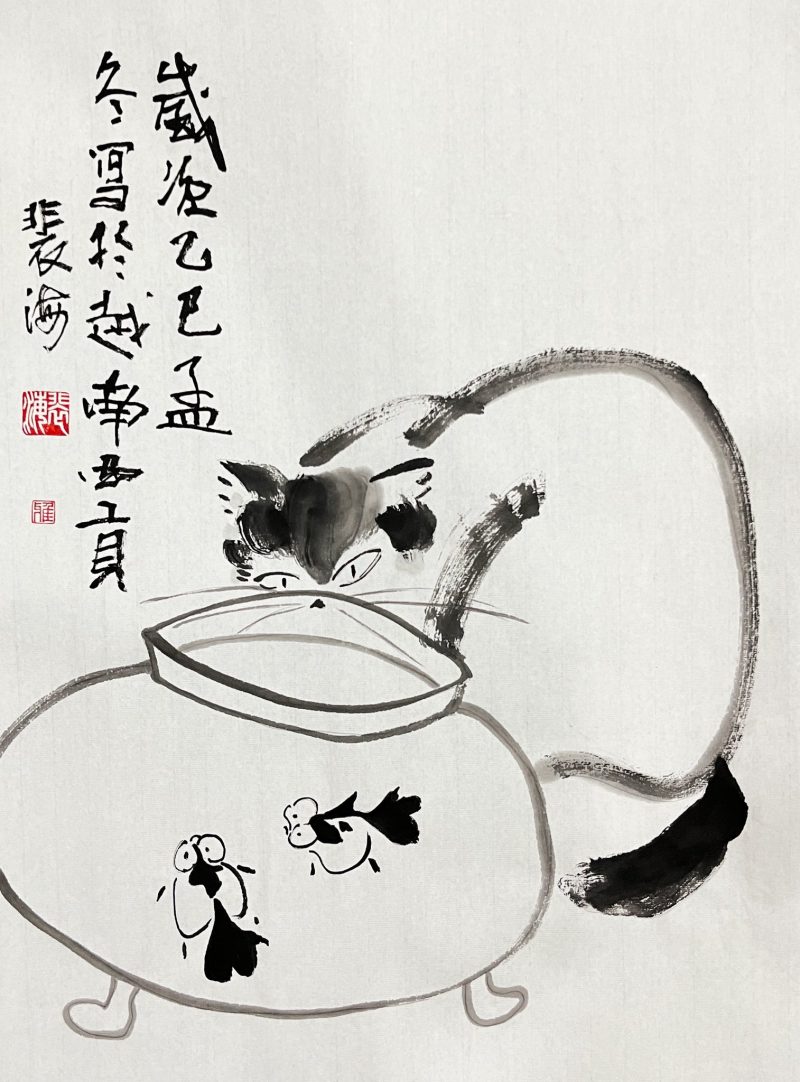 歲次乙巳孟
冬寫於越南西貢
裴海
裴海